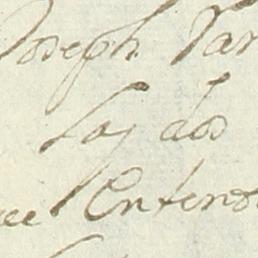 Joseph Var
Laj dos
ee Entend